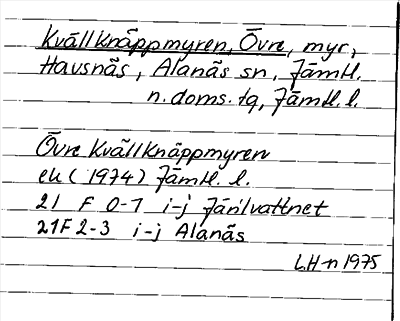 Kvällknäppmyren, Övre, myr,
Havsnäs, Alanäs sn, Jämtl.
n. doms. tg, Jämtl. l.
Övre Kvällknäppmyren
ek (1974) Jämtl. l.
21 F 0-1 i-j Järilvattnet
21F 2-3 i-j Alanäs
LH-n 1975